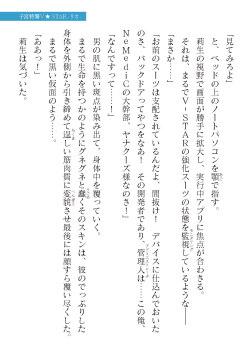 子宮特警V★STAR-リカ
「見てみろよ」
と、ベッドの上のノートパソコンを顎で指す。
莉生の視野で画面が勝手に拡大し、実行中アプリに焦点が合わさる。
それは、まるでV・STARの強化スーツの状態を監視しているような――
「まさか……」
「お前のスーツは支配されているんだよ、間抜け! デバイスに仕込んでおいた
のさ、バックドアってやつをなあ! その開発者であり、管理人は……この俺、
NeMediCの大幹部、ヤナクーズ様なのさ!」
「なんですって……!」
男の肌に黒い斑点が染み出て、身体中を覆っていく。
まるで生命を持つかのようにグネグネと蠢くそのスキンは、彼のでっぷりした
身体を外側から引き締めて逞しい筋肉質に変貌させ最後には顔すら覆い尽くした。
まるで黒い仮面のよう……
「ああっ!」
莉生は気づいた。